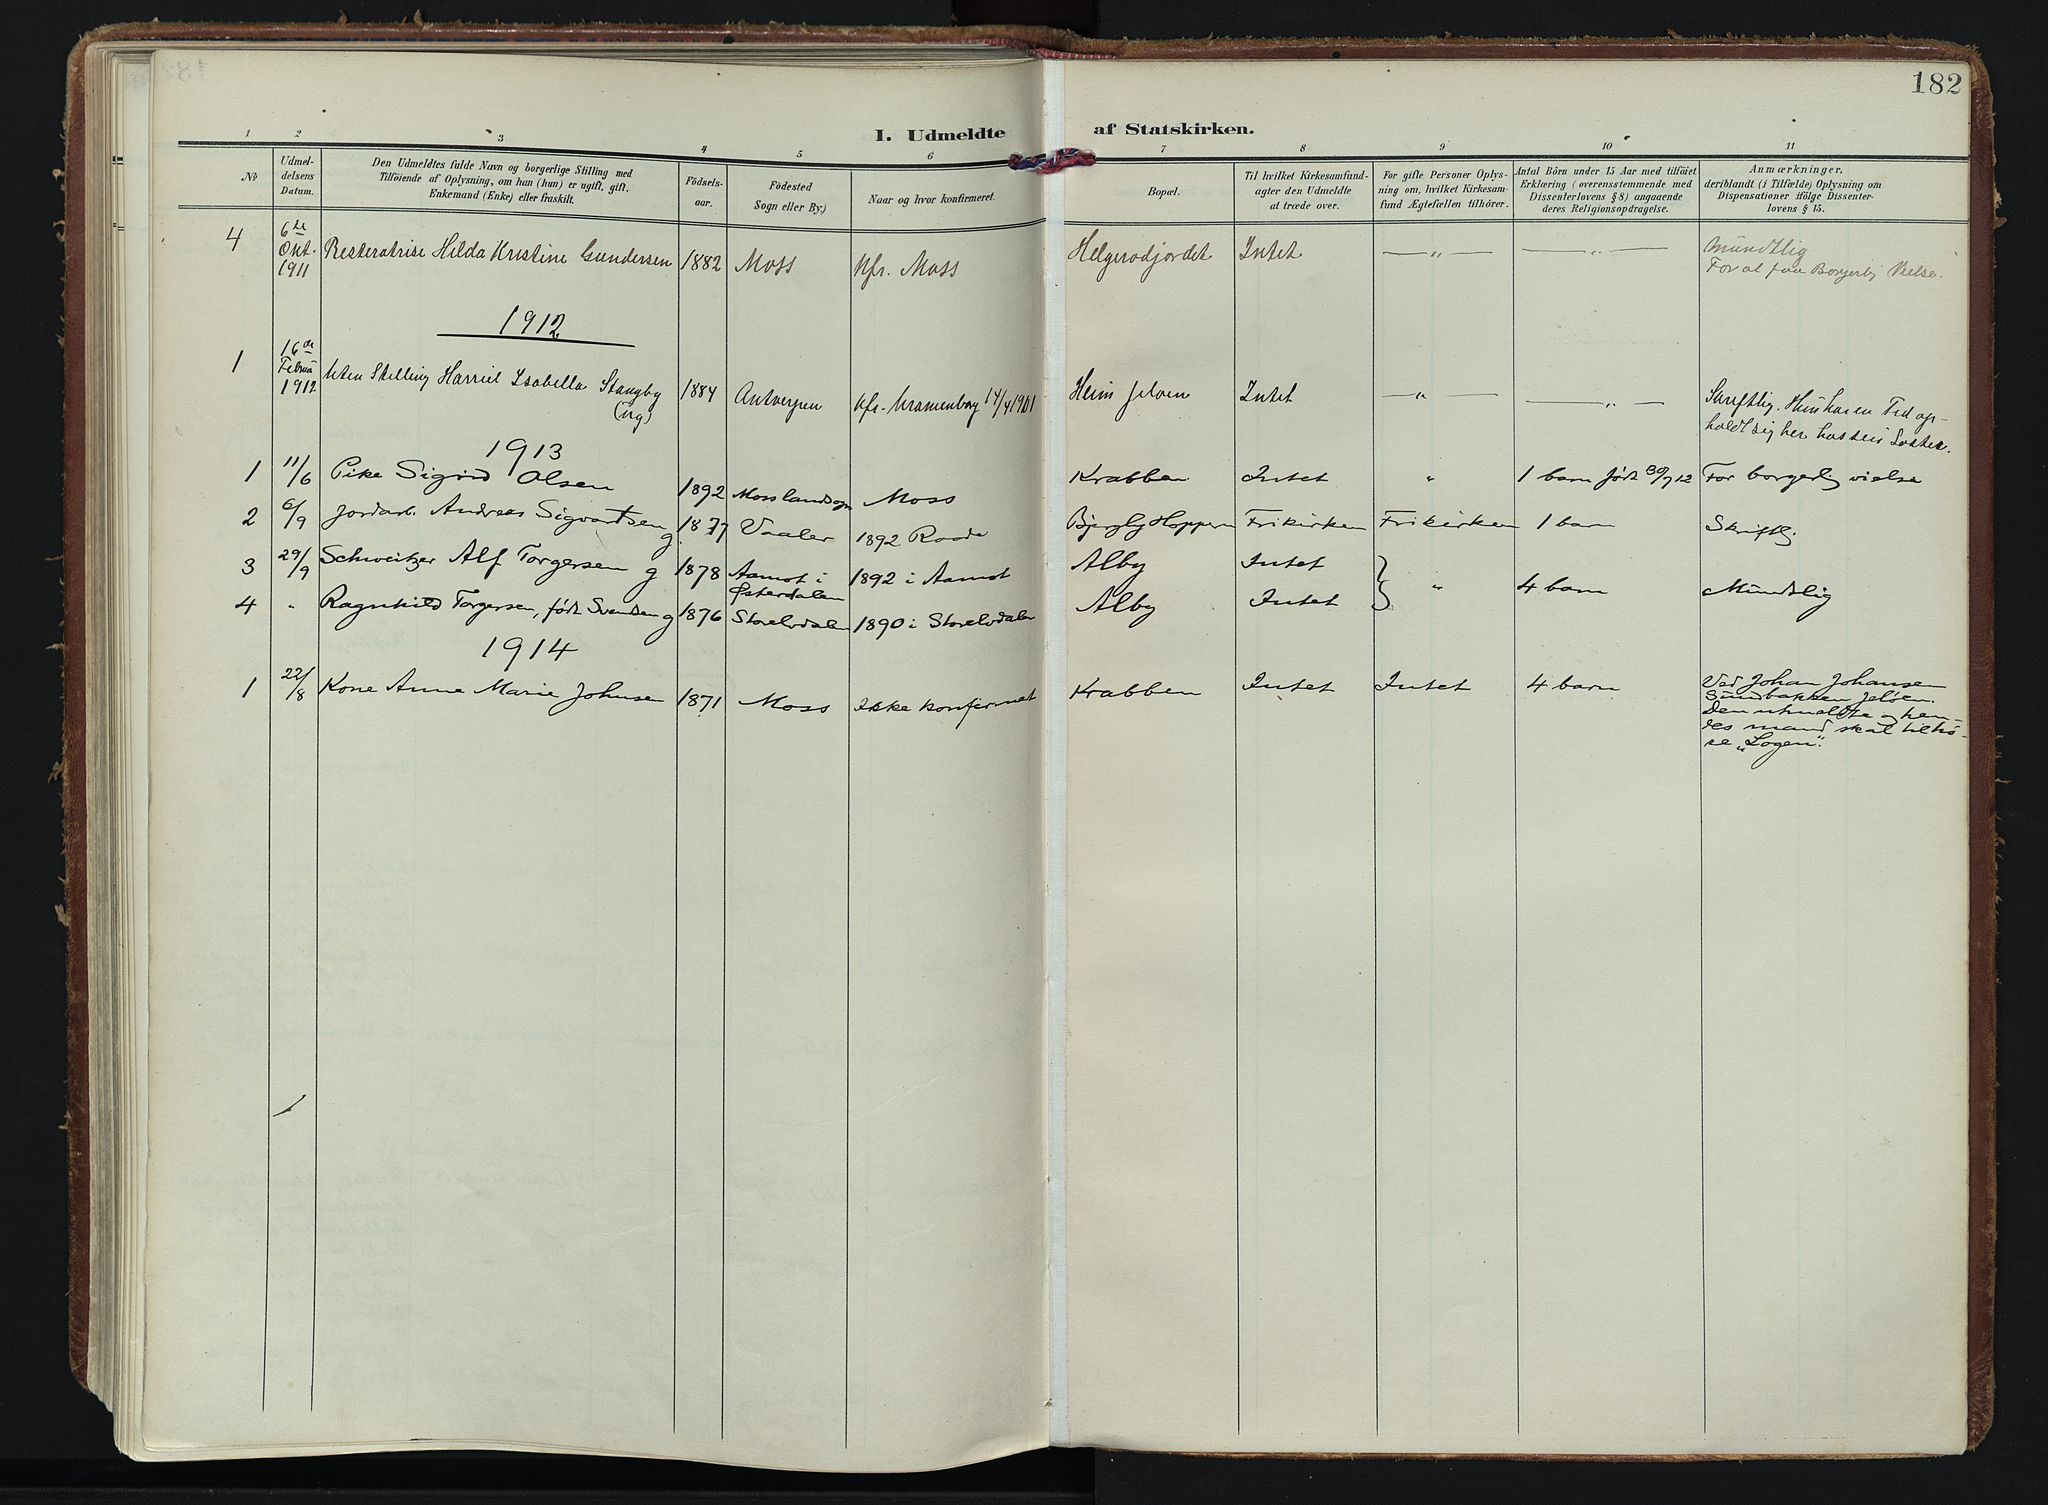 182
I. Udmeldte af Statskirken.
1 2 3 4 5 6 7 8 9 10 11
No
Udmel-
delsens
Datum.
Den Udmeldtes fulde Navn og borgerlige Stilling med
Tilföiende af Oplysning, om han (hun) er ugift, gift,
Enkemand (Enke) eller fraskilt.
Födsels-
aar.
Födested
Sogn eller By.)
Naar og hvor konfirmeret.
Bopæl.
Til hvilket Kirkesamfund-
agter den Udmeldte
at træde over.
For gifte Personer Oplys-
ning om, hvilket Kirkesam-
fund Ægtefællen tilhörer.
Antal Börn under 15 Aar med tilföiet
Erklæring (overensstemmende med
Dissenterlovens § 8) angaaende
deres Religionsopdragelse.
Anmærkninger,
deriblandt (i Tilfælde) Oplysning om
Dispensationer ifölge Dissenter-
lovens § 15.
4 6te Okt. 1911 Hilda Kristine Gundersen 1882 Moss Kfr. Moss Helgerødjordet Intet — „ — — „ — Mundtlig
For at faa Borgerlig Vielse.
1912
1 16de Februar 1912 Uten Stilling Harriet Isabella Stangby (ug) 1884 Antverpen Kfr. 14/4 1901 Heim Jeløen Intet — „ — — „ — Skriftlig. Hun har en Tid op-
holdt sig her hos sin Søster.
1913
1 11/6 Pike Sigrid Olsen 1892 Moss landsogn Moss Krabben Intet „ 1 barn født 30/9 12 For borgerlig vielse
2 6/9 Jordarb. Andreas Sigvartsen g 1877 Vaaler 1892 Raade Hoppern Frikirken Frikirken 1 barn Skriftlig.
3 29/9 Schweitzer Alf Torgersen g 1878 Aamot i Østerdalen 1892 i Aamot Alby Intet } „ 4 barn Mundtlig
4 „ Ragnhild Torgersen, født Svendsen g 1876 Storelvdalen 1890 i Storelvdalen Alby Intet
1914
1 22/8 Kone Anne Marie Johnsen 1871 Moss Ikke konfirmeret Krabben Intet Intet 4 barn Ved Johan Johansen
Sundbakken Jeløen.
Den utmeldte og hen-
des mand skal tilhø-
re „Logen“.